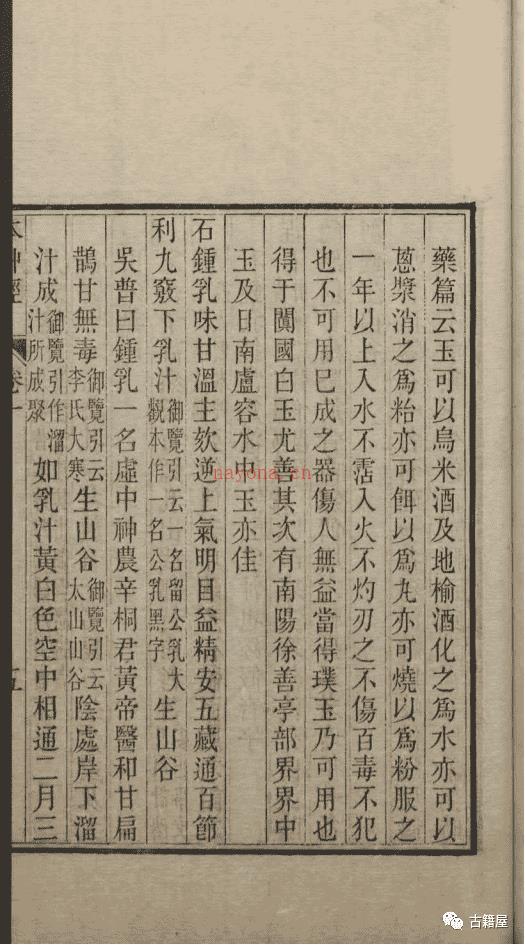 藥篇云玉可以烏米酒及地榆酒化之爲水亦可以
蔥漿消之爲粭亦可餌以爲丸亦可燒以爲粉服之
一年以上入水不霑入火不灼刃之不傷百毒不犯
也不可用已成之器傷人無益當得璞玉乃可用也
得于闐國白玉尤善其次有南陽徐善亭部界界中
玉及日南盧容水中玉亦佳
石鍾乳味甘溫主欬逆上氣明目益精安五藏通百節
利九竅下乳汁御覽引云一名留公乳大觀本作一名公乳黑字生山谷
吳普曰鍾乳一名虛中神農辛桐君黃帝醫和甘扁
鵲甘無毒御覽引云李氏大寒生山谷御覽引云太山山谷陰處岸下溜
汁成御覽引作溜汁所成聚如乳汁黃白色空中相通二月三
本艸經 卷一 五
nayona.cn
古籍屋